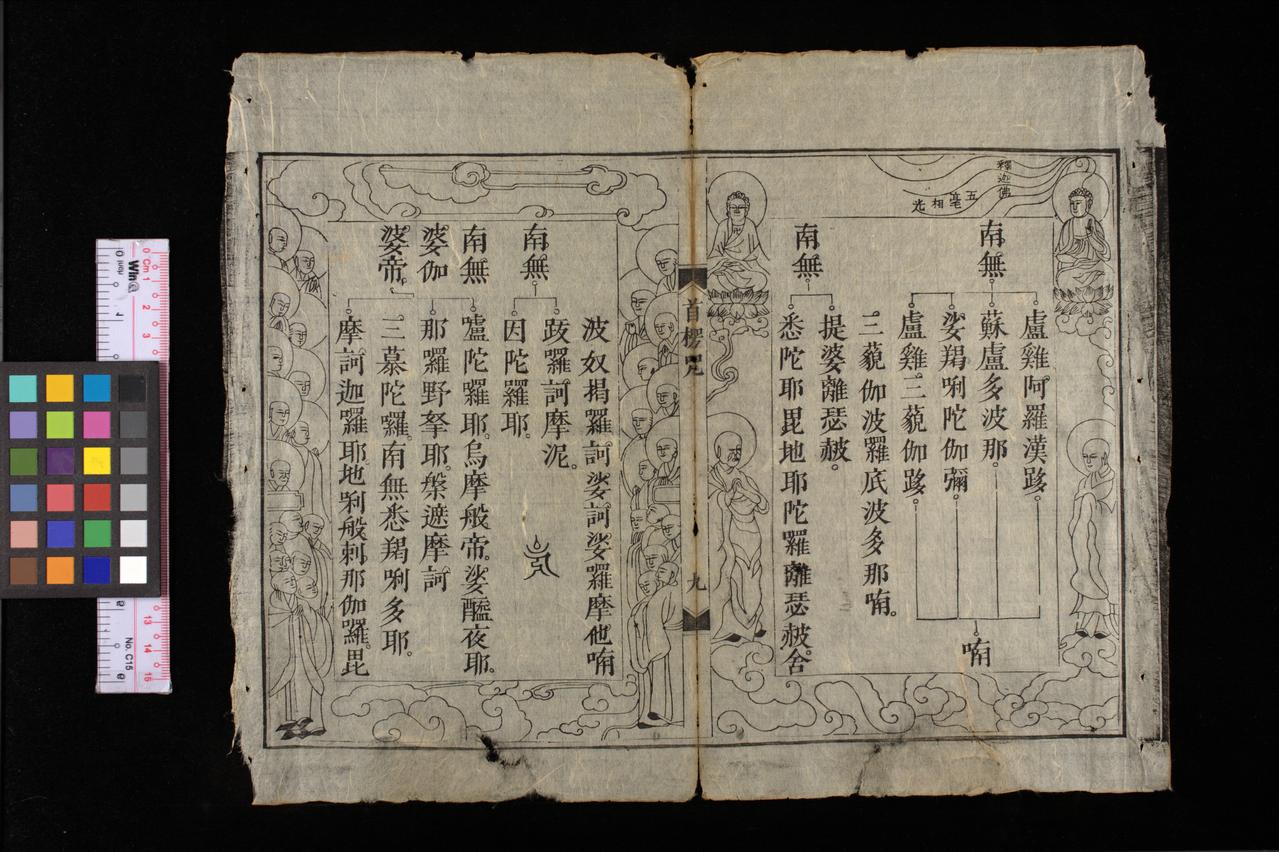 釋迦佛
五毫相光
南無
盧雞阿羅漢跢。
蘇盧多波那。
娑羯唎陀伽彌。
盧雞三藐伽跢。
喃
三藐伽波羅底波多那喃。
南無
提婆離瑟赧。
悉陀耶毘地耶陀羅離瑟赧。舍
首楞咒
九
波奴揭羅訶娑訶娑囉摩他喃
南無
跋囉訶摩泥。
因陀囉耶。
南無
婆伽
婆帝。
嚧陀囉耶。烏摩般帝。娑醯夜耶。
那囉野拏耶。槃遮摩訶
三慕陀囉。南無悉羯唎多耶。
摩訶迦羅耶地唎般剌那伽囉。毘